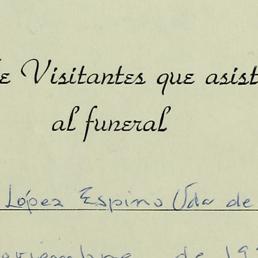 de Visitantes que asist
al funeral
López Espino Vda de
noviembre de 19